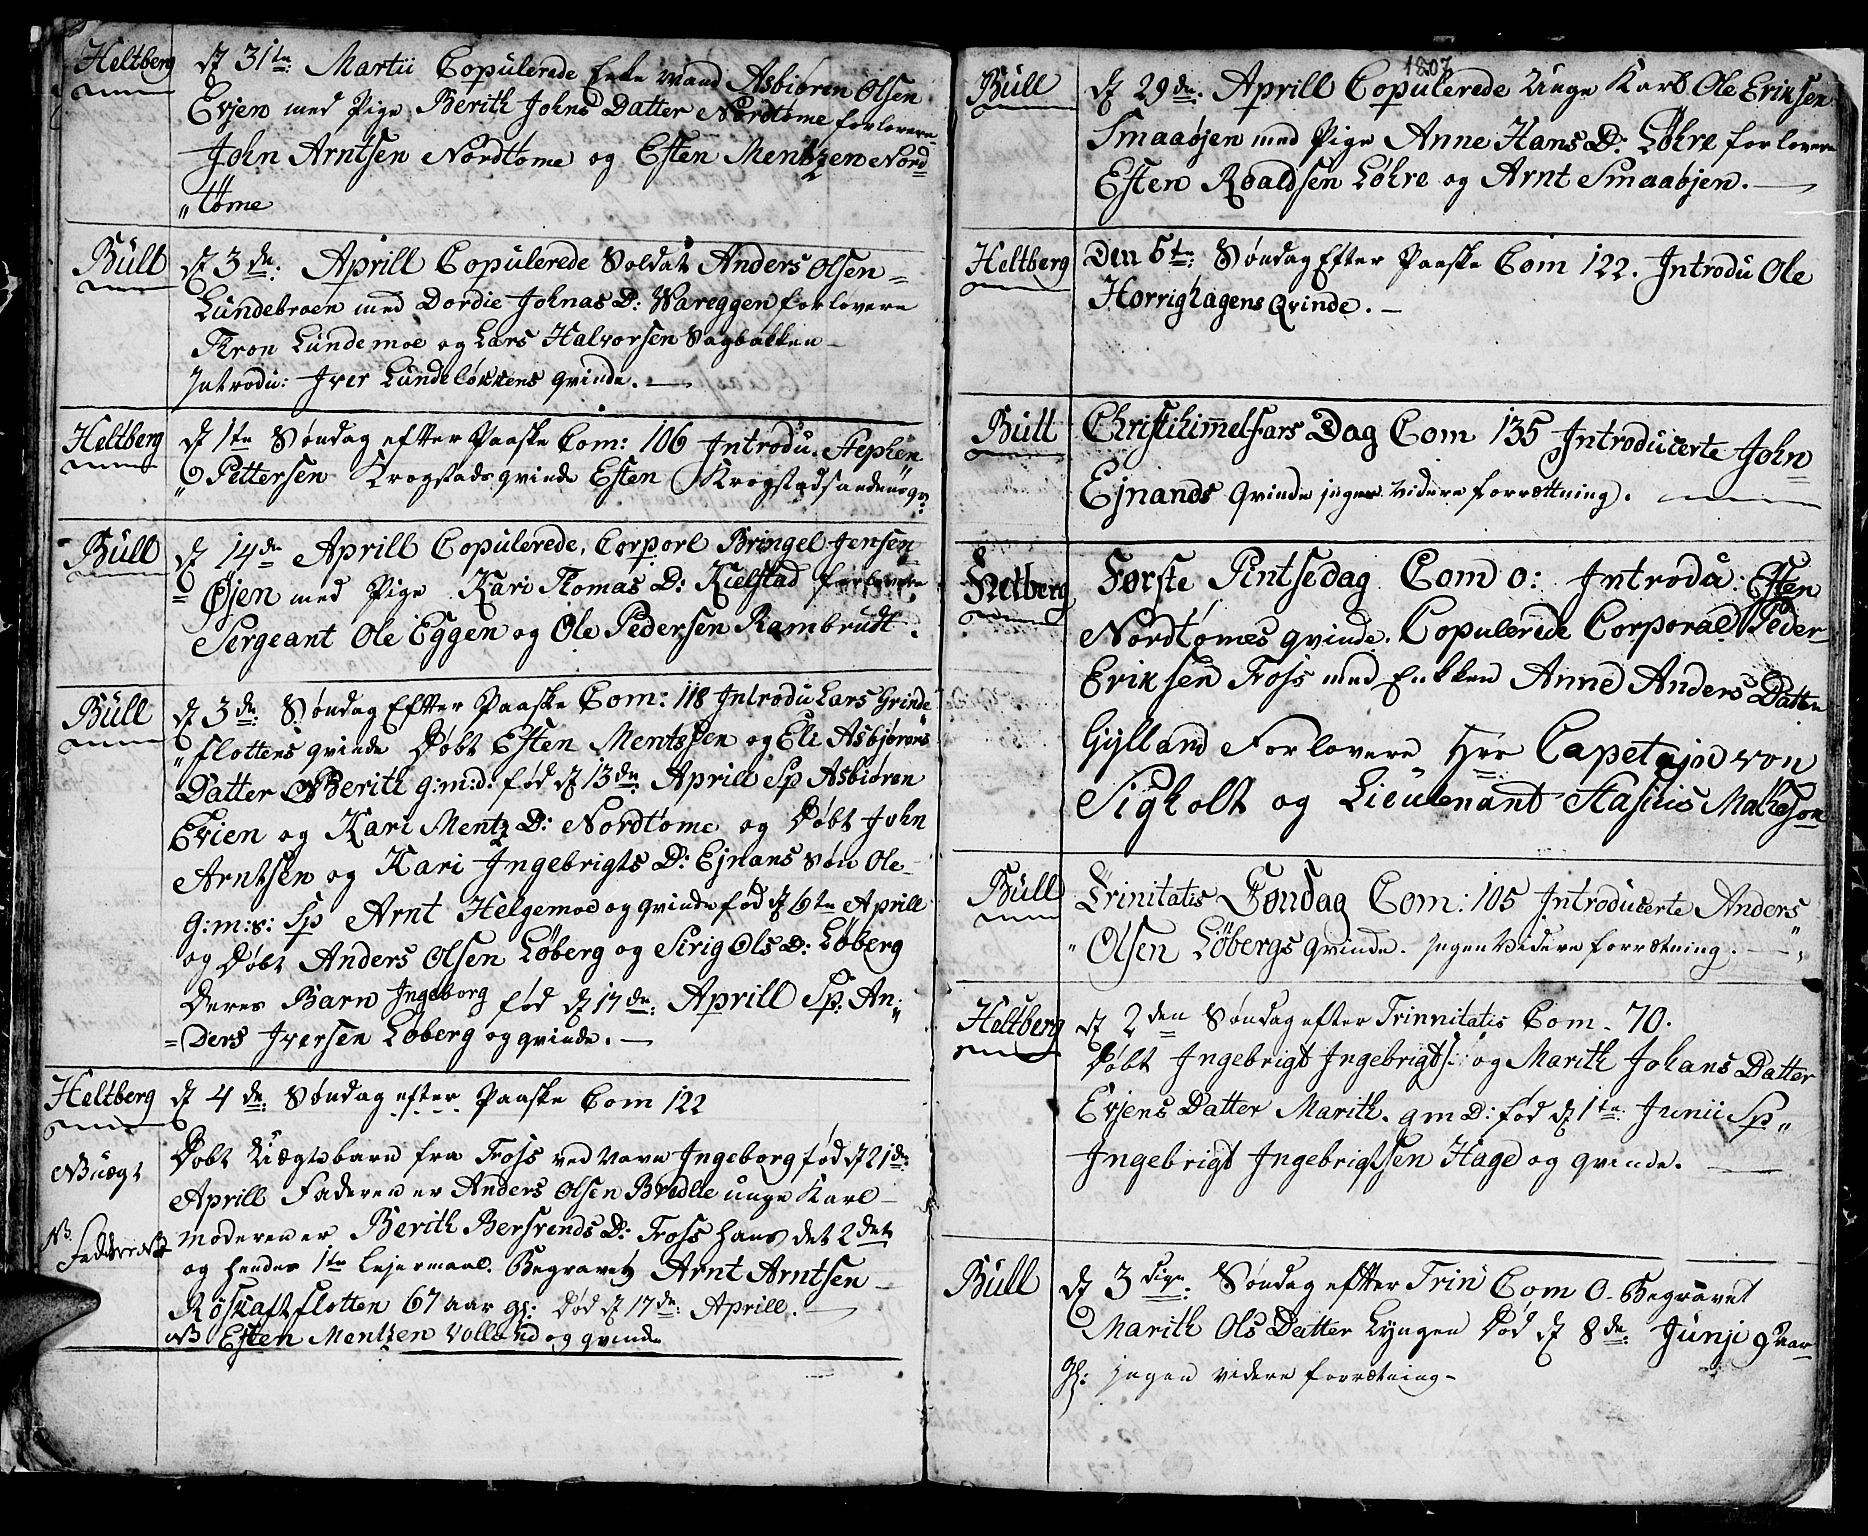 Heltberg
d 31te: Martii Copulerede Enke Mand Asbiören Olsen
Evjen med Pige Berith Johns Datter Nordtöme forlovere
John Arntsen Nordtöme og Esten Mentzen Nord
"töme
Büll
d 3de: Aprill Copulerede Soldat Anders Olsen =
Lundebroen med Dordie Johnas D: Wareggen forlovere
Tron Lundemoe og Lars Halvorsen Bagbakken -
Introdu: Iver Lundeløkkens Qvinde. —
Heltberg
d 1te Søndag efter Paaske Com: 106 Introdu. Stephen
" Pettersen Krogstads qvinde Esten Krogstadsandens qv:
Büll
d 14de Aprill Copulerede, Corporl Bringel Jensen
= Øjen med Pige Kari Tomas D: Kielstad forlovere
Sergeant Ole Eggen og Ole Pedersen Rambrudt.
Büll
d 3de: Søndag Efter Paaske Com: 118 Introdu Lars Grinde
" flottens qvinde Døbt Esten Mentssen og Eli Asbjørens
Datter Berith g:m:d: fød d 13de: Aprill Sp Asbiøren
Evien og Kari Mentz D: Nordtøme og Døbt John
Arntsen og Kari Ingebrigts D: Ejnans Søn Ole -
g:m:s: Sp Arnt Helgemoe og qvinde fød d 6te Aprill
og Døbt Anders Olsen Løberg og Sirig Ols D: Løberg
Deres Barn Ingeborg fød d 17de: Aprill Sp: An:
= Ders Iversen Løberg og qvinde. —
Heltberg
d 4de: Søndag efter Paaske Com 122
Døbt Uægtebarn fra Foss ved Navn Ingeborg fød d 21de:
Aprill Faderen er Anders Olsen Bredlie unge Karl -
Moderen er Berith Bersvends D: Foss hans det 2det
og hendes 1te Lejermaal. Begravet Arnt Arntsen -
Røskaftflotten 67 aar gl: Død d 17de: Aprill. —
NB Esten Mentzen Volland og qvinde
1807
Büll
d 29de: Aprill Copulerede Unge Karl Ole Eriksen
Smaaøjen med Pige Anne Hans D: Løhre forlovere
Esten Roaldsen Løhre og Arnt Smaaøjen. —
Heltberg
Den 5te: Søndag Efter Paaske Com 122. Introdu Ole
Horrighagens Qvinde. -
Büll
Christihimmelfars Dag Com 135 Introducerte John
Ejnands Qvinde ingen videre forrettning. —
Heltberg
Første Pintsedag Com 0: Introdu: Esten
Nordtømes qvinde. Copulerede Corporal Peder
Eriksen Foss med Enkken Anne Anders Datter
Gylland Forlovere Her Capetajn von
Sigholt og Lieutenant Stasius Matheson
Büll
Trinitatis Søndag Com: 105 Introducerte Anders
" Olsen Løbergs qvinde. Ingen videre forretning. —
Heltberg
d 2den Søndag efter Trinnitatis Com. 70.
Døbt Ingebrigt Ingebrigts: og Marith Johans Datter
Evjens Datter Marith. g m D: fød d 1te: Junii Sp"
Ingebrigt Ingebrigtsen Hage og qvinde. —
Büll
d 3die: Søndag efter Trin Com 0- Begravet
Marith Ols Datter Lyngen Død d 8de: Junji 9 Aar
gl: ingen videre forretning -